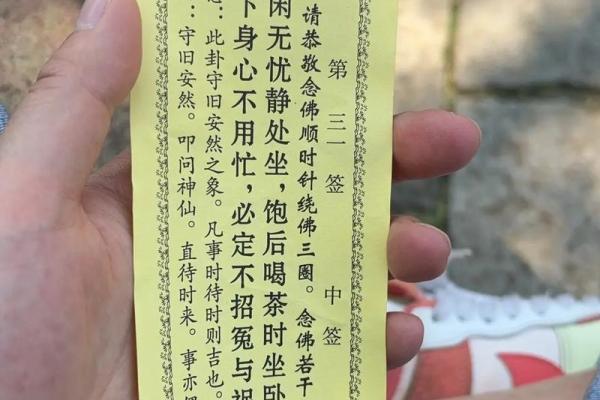 请恭敬念佛顺时针绕佛三圈。念佛若干
第三一签 中签
闲无忧静处坐，饱后喝茶时坐卧
下身心不用忙，必定不招冤与祸
：此卦守旧安然之象。凡事待时则吉也。
：守旧安然。叩问神仙。直待时来。事亦